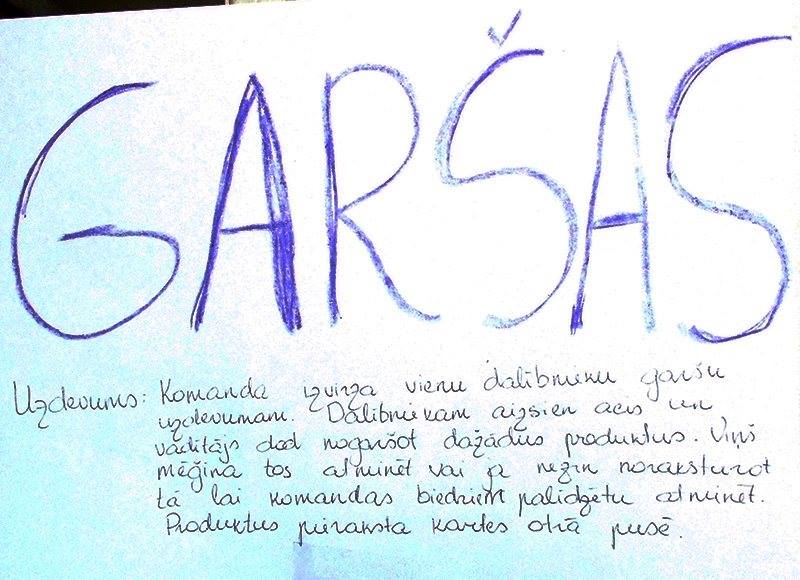 GARŠAS
Uzdevums: Komanda izvirza vienu dalībnieku garšu
uzdevumam. Dalībniekam aizsien acis un
vadītājs dod nogaršot dažādus produktus. Viņš
mēģina tos atminēt vai ja nezin noraksturot
tā lai komandas biedriem palīdzētu atminēt.
Produktus pieraksta kartes otrā pusē.